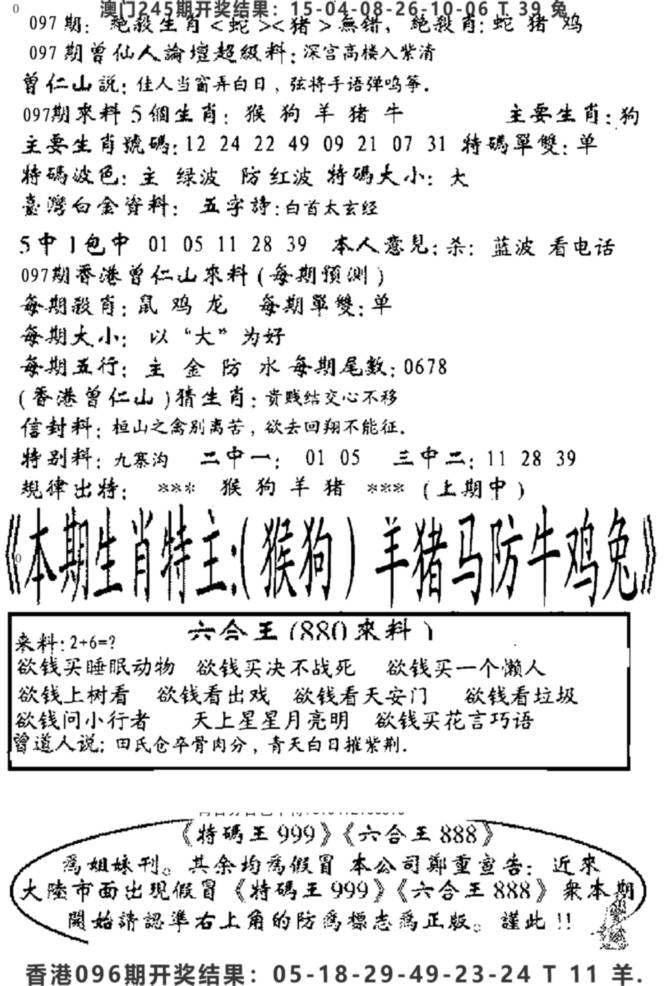 澳门245期开奖结果：15-04-08-26-10-06 T 39 兔
097期：絶殺生肖<蛇><猪>無錯，絶殺肖：蛇 猪 鸡
097期曾仙人論壇超級料：深宫高楼入紫清
曾仁山説：佳人当窗弄白日，弦将手语弹鸣筝.
097期來料5個生肖：猴 狗 羊 猪 牛 主要生肖：狗
主要生肖號碼：12 24 22 49 09 21 07 31 特碼單雙：单
特碼波色：主 绿波 防红波 特碼大小：大
臺灣白金资料：五字詩：白首太玄经
5中1包中 01 05 11 28 39 本人意見：杀：蓝波 看电话
097期香港曾仁山來料(每期预测)
每期殺肖：鼠 鸡 龙 每期單雙：单
每期大小：以“大”为好
每期五行：主 金 防 水 每期尾數：0678
(香港曾仁山)猜生肖：贵贱结交心不移
信封料：桓山之禽别离苦，欲去回翔不能征.
特别料：九寨沟 二中一：01 05 三中二：11 28 39
規律出特：*** 猴 狗 羊 猪 *** (上期中)
《本期生肖特主:(猴狗)羊猪马防牛鸡兔》
六合王(880來料)
来料：2+6=?
欲钱买睡眠动物 欲钱买决不战死 欲钱买一个懒人
欲钱上树看 欲钱看出戏 欲钱看天安门 欲钱看垃圾
欲钱问小行者 天上星星月亮明 欲钱买花言巧语
曾道人说：田氏仓卒骨肉分，青天白日摧紫荆.
《特碼王999》《六合王888》
爲姐妹刊。其余均爲假冒 本公司鄭重宣告：近來
大陸市面出現假冒《特碼王999》《六合王888》衆本期
開始請認準右上角的防爲標志爲正版。謹此!!
香港096期开奖结果：05-18-29-49-23-24 T 11 羊.